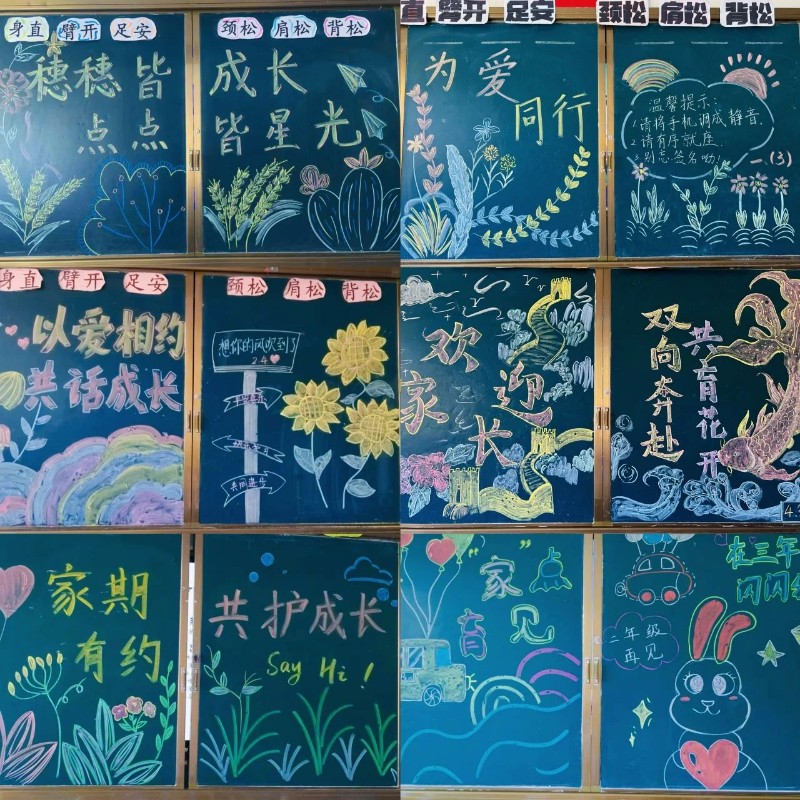 身直 臂开 足安
颈松 肩松 背松
穗穗皆
点点
成长
皆星光
直 臂开 足安
颈松 肩松 背松
为爱
同行
温馨提示:
1.请将手机调成静音.
2.请有序就座.
3.别忘签名呦.
一.(3)
身直 臂开 足安
颈松 肩松 背松
以爱相约
共话成长
想你的风吹到了
2.4
欢迎
家长
双向奔赴
共育花开
家期
有约
共护成长
Say Hi!
“家”
育见
在三年
闪闪
二年级
再见